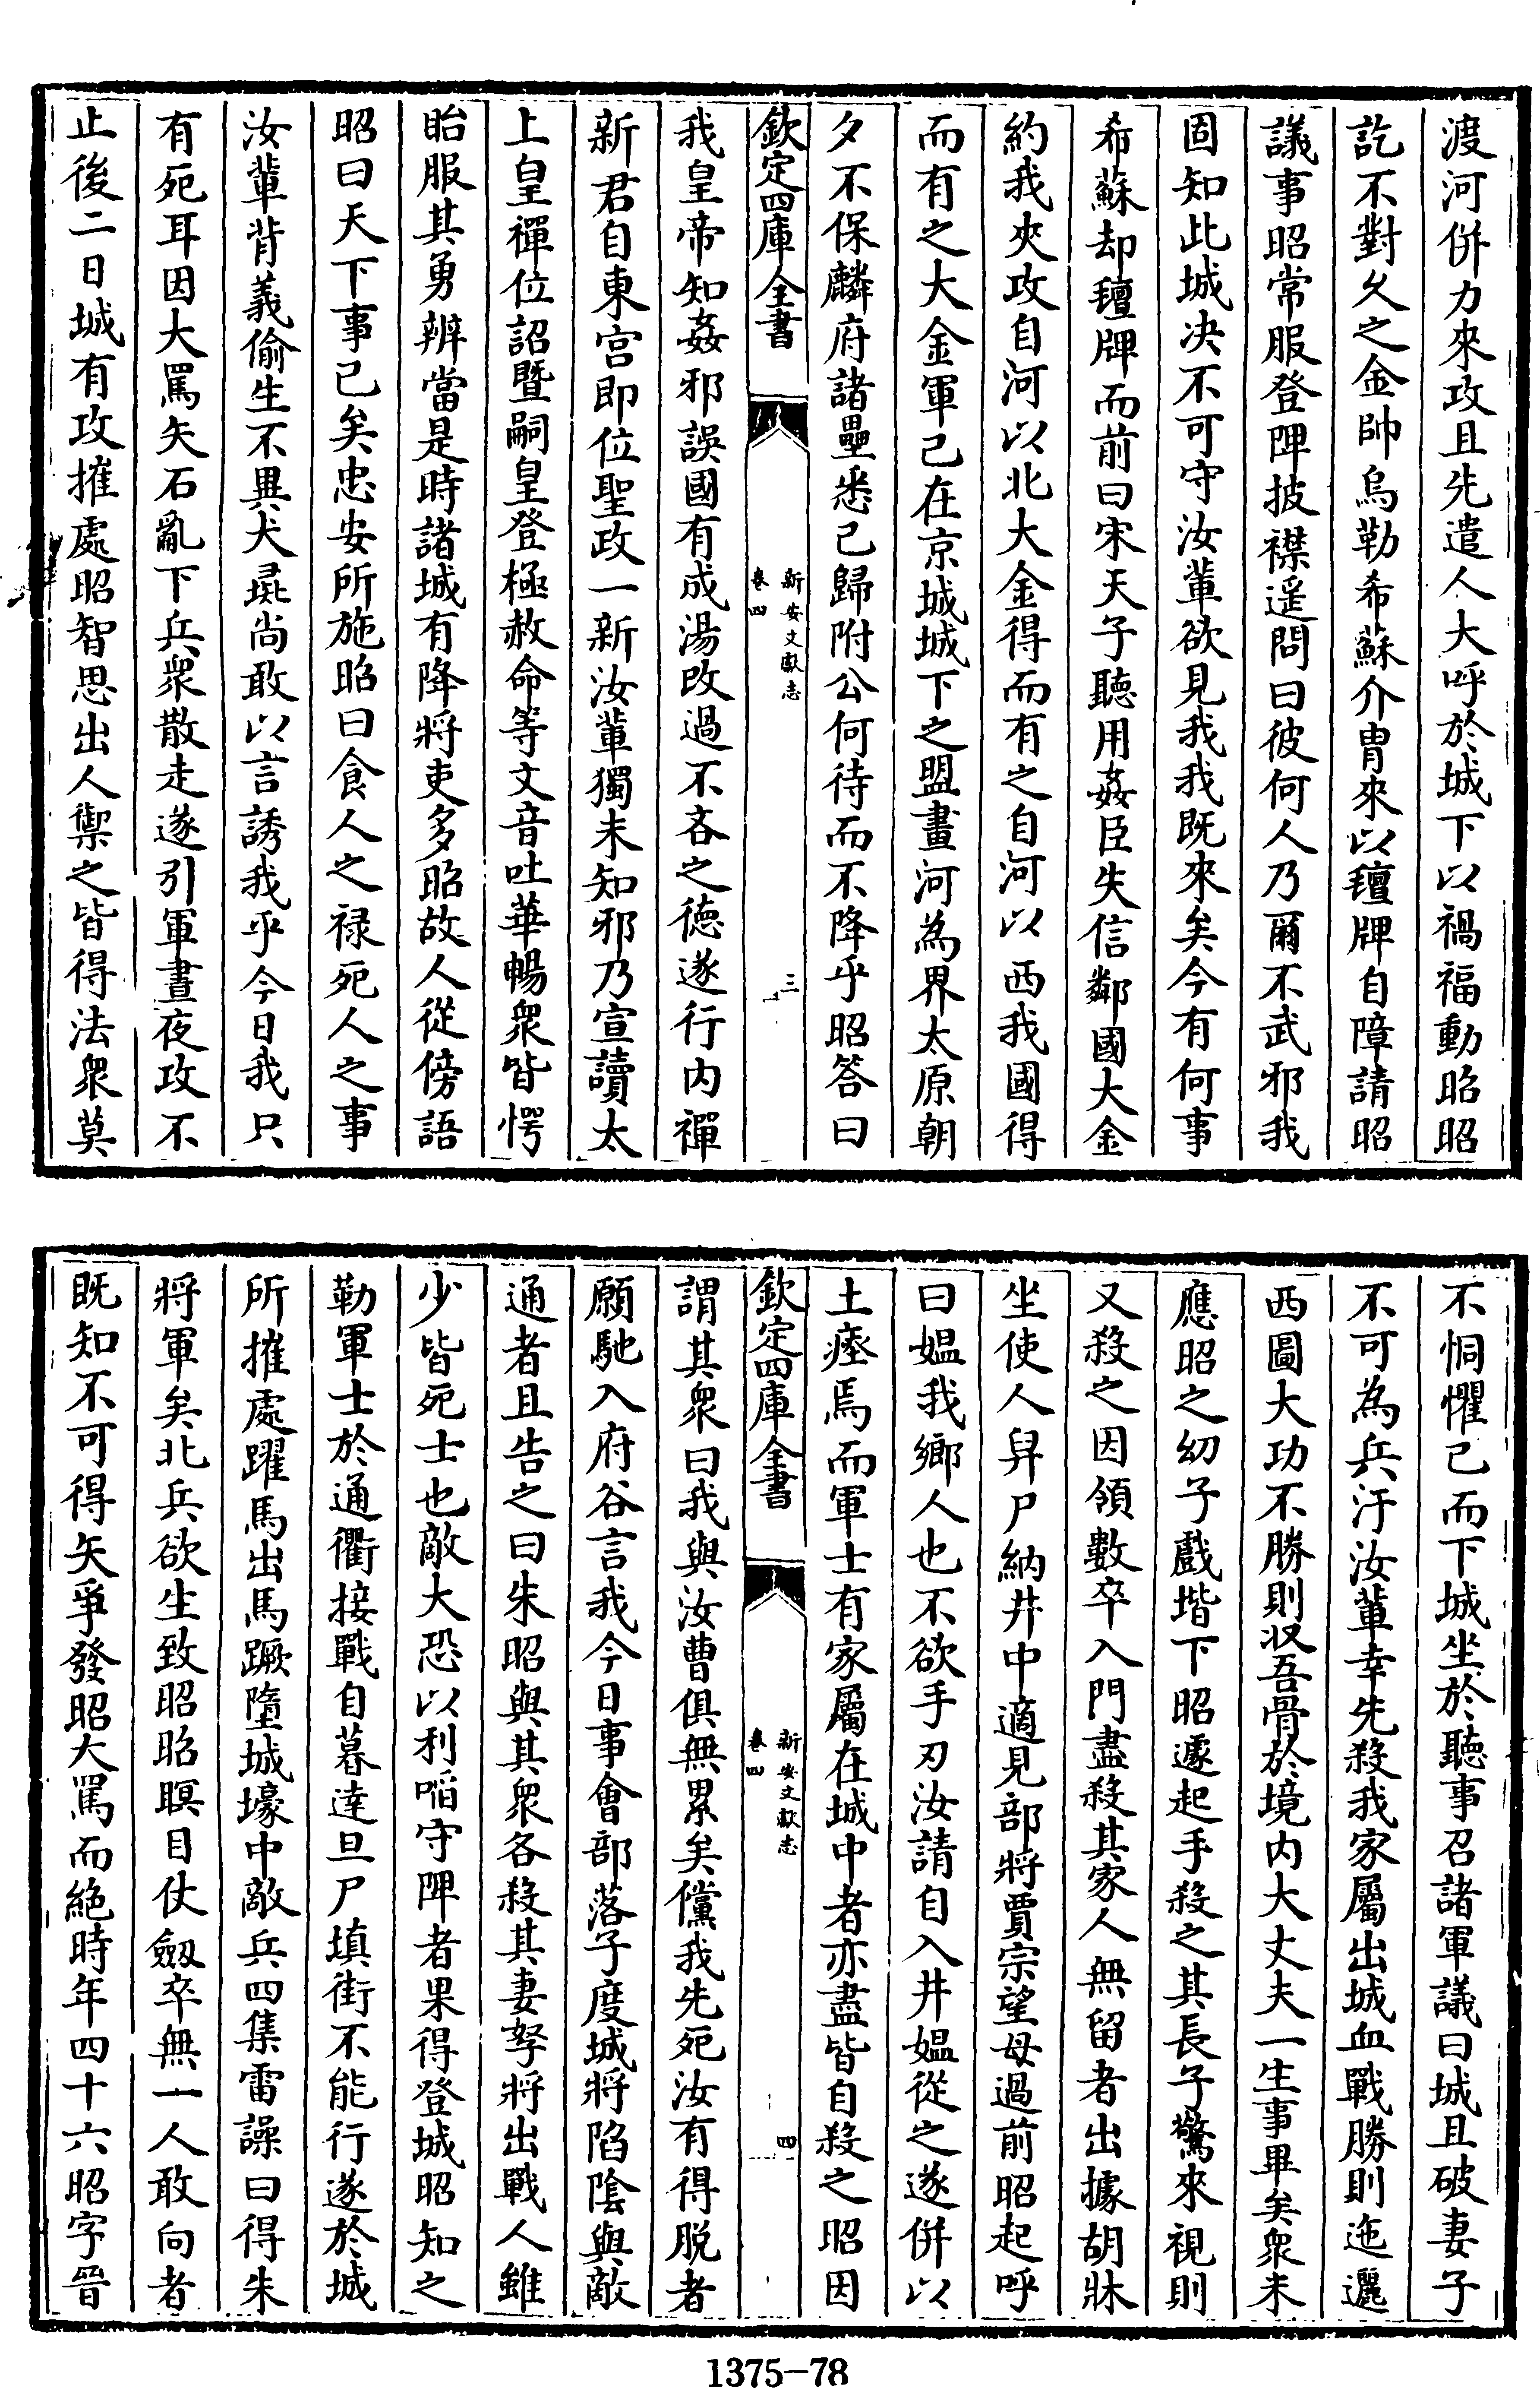 渡河併力來攻且先遣人大呼於城下以禍福動昭昭
訖不對久之金帥烏勒希蘇介胄來以氊牌自障請昭
議事昭常服登陴披襟遥問曰彼何人乃爾不武邪我
固知此城决不可守汝輩欲見我我既來矣今有何事
希蘇却氊牌而前曰宋天子聽用姦臣失信鄰國大金
約我夾攻自河以北大金得而有之自河以西我國得
而有之大金軍已在京城城下之盟畫河為界太原朝
夕不保麟府諸壘悉已歸附公何待而不降乎昭答曰
欽定四庫全書
新安文獻志
卷四
三
我皇帝知姦邪誤國有成湯改過不吝之德遂行内禪
新君自東宫即位聖政一新汝輩獨未知邪乃宣讀太
上皇禪位詔暨嗣皇登極赦命等文音吐華暢衆皆愕
眙服其勇辨當是時諸城有降將吏多昭故人從傍語
昭曰天下事已矣忠安所施昭曰食人之禄死人之事
汝輩背義偷生不異犬彘尚敢以言誘我乎今日我只
有死耳因大罵矢石亂下兵衆散走遂引軍晝夜攻不
止後二日城有攻摧處昭智思出人禦之皆得法衆莫
不恫懼已而下城坐於聽事召諸軍議曰城且破妻子
不可為兵汙汝輩幸先殺我家屬出城血戰勝則迤邐
西圖大功不勝則收吾骨於境内大丈夫一生事畢矣衆未
應昭之幼子戲堦下昭遽起手殺之其長子驚來視則
又殺之因領數卒入門盡殺其家人無留者出據胡牀
坐使人舁尸納井中適見部將賈宗望母過前昭起呼
曰媪我鄉人也不欲手刃汝請自入井媪從之遂併以
土瘞焉而軍士有家屬在城中者亦盡皆自殺之昭因
欽定四庫全書
新安文獻志
卷四
四
謂其衆曰我與汝曹俱無累矣儻我先死汝有得脱者
願馳入府谷言我今日事會部落子度城將陷陰與敵
通者且告之曰朱昭與其衆各殺其妻孥將出戰人雖
少皆死士也敵大恐以利啗守陴者果得登城昭知之
勒軍士於通衢接戰自暮達旦尸填街不能行遂於城
所摧處躍馬出馬蹶墮城壕中敵兵四集雷譟曰得朱
將軍矣北兵欲生致昭昭瞑目仗劔卒無一人敢向者
既知不可得矢爭發昭大罵而絶時年四十六昭字晉
1375-78